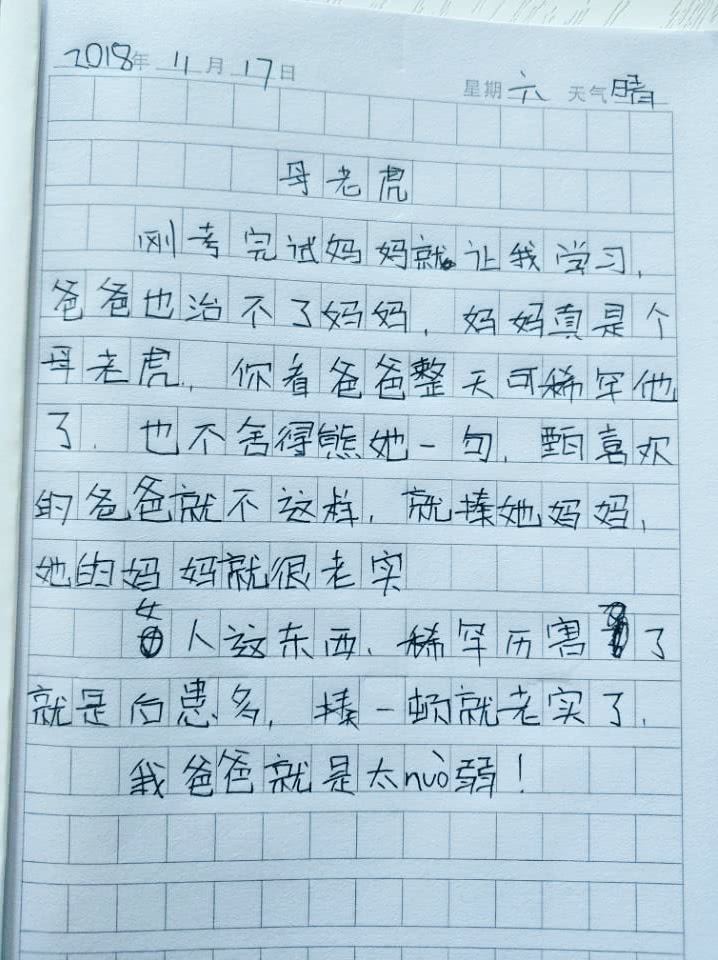 2018年11月17日 星期六 天气晴
母老虎
刚考完试妈妈就让我学习,
爸爸也治不了妈妈,妈妈真是个
母老虎,你看爸爸整天可稀罕他
了.也不舍得熊她一句,喜欢
的爸爸就不这样,就揍她妈妈,
她的妈妈就很老实
女人这东西、稀罕历害了
就是后患多,揍一顿就老实了.
我爸爸就是太nuò弱!